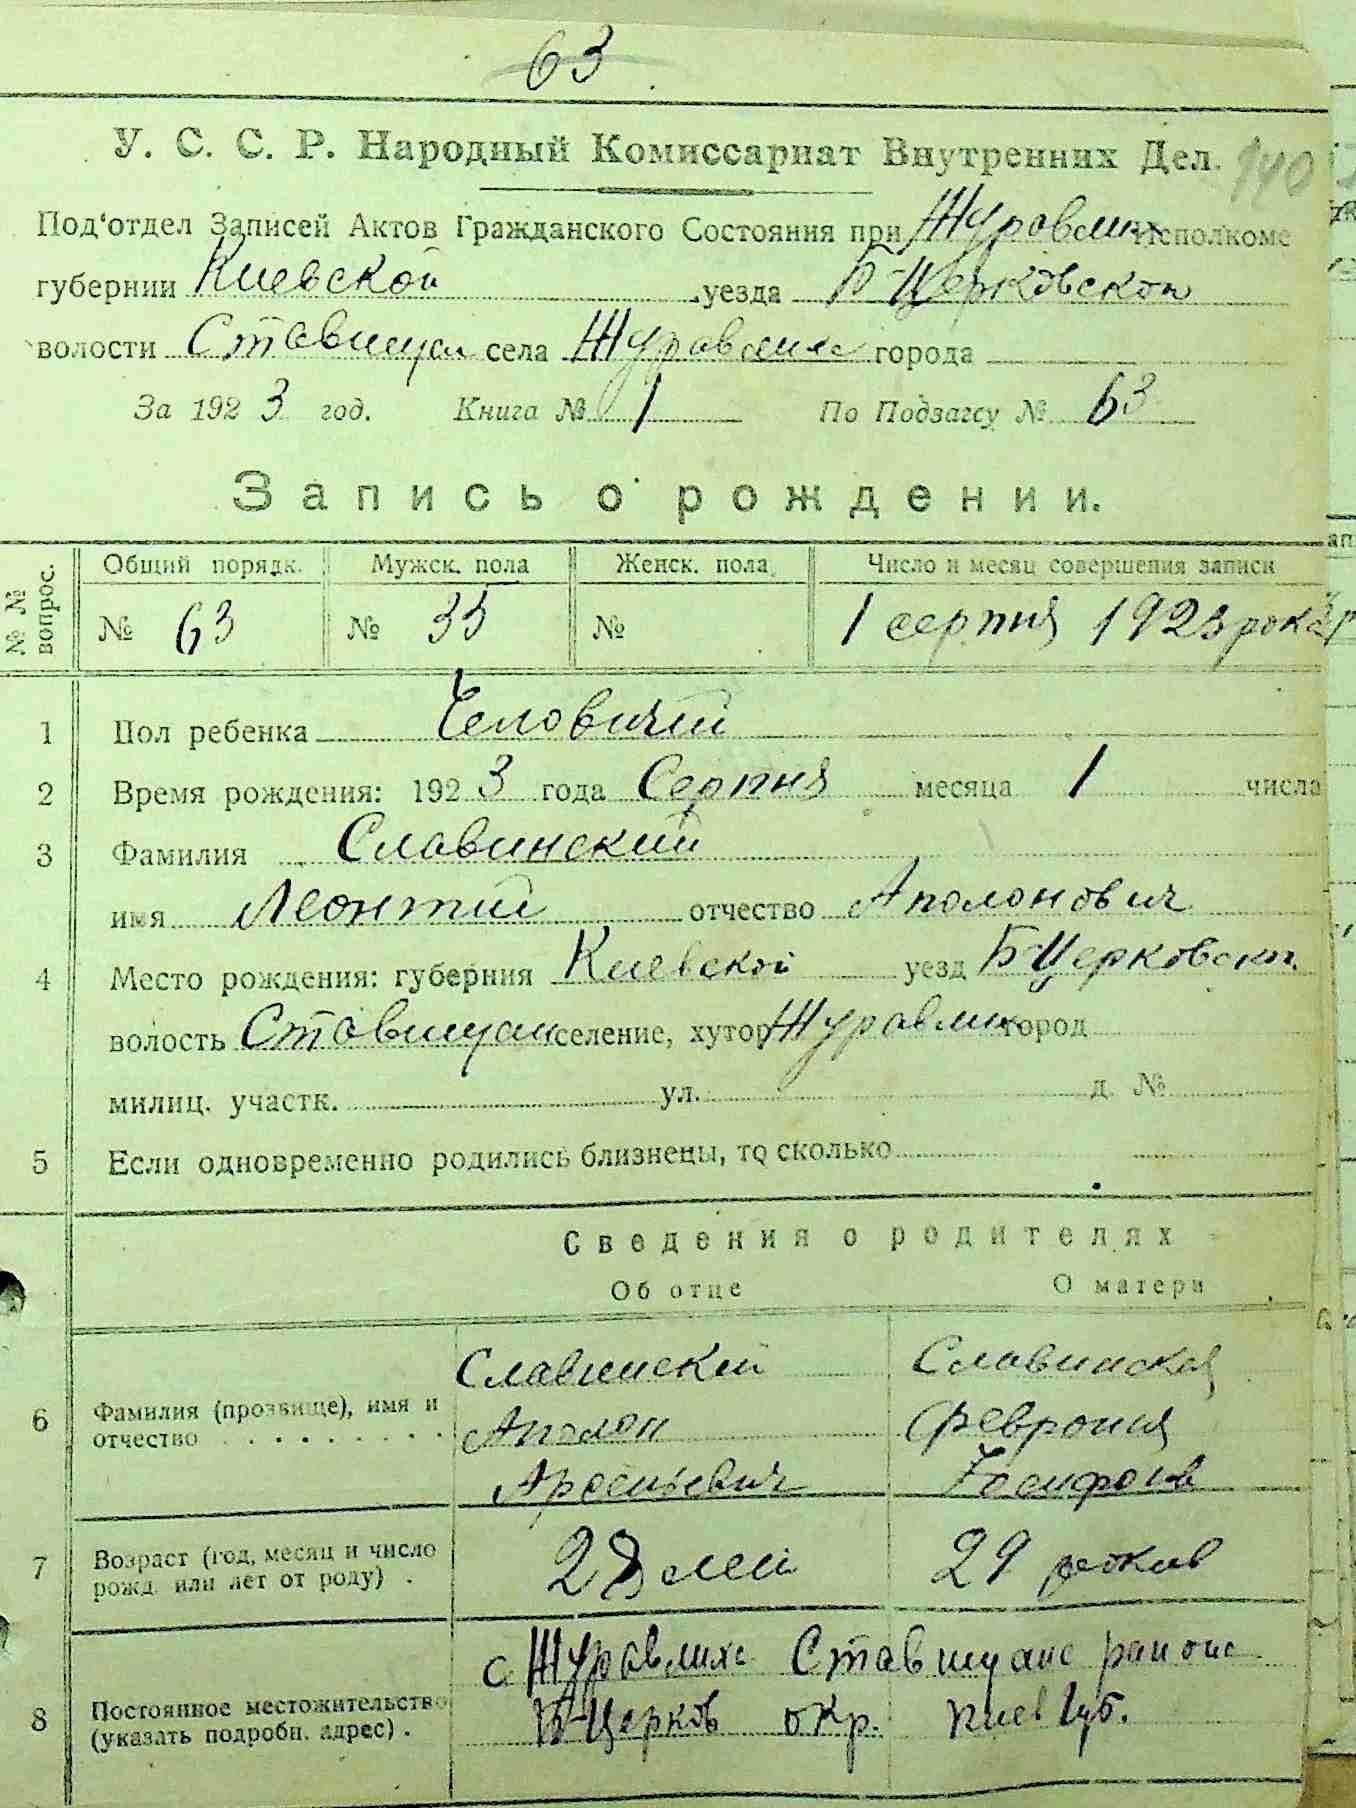 63
У. С. С. Р. Народный Комиссариат Внутренних Дел. 140
Под‘отдел Записей Актов Гражданского Состояния при Журавлих Исполкоме
губернии Киевской уезда Б-Церковской
волости Ставищан села Журавлиха города
За 1923 год. Книга № 1 По Подзагсу № 63
Запись о рождении.
№ № вопрос. Общий порядк. Мужск. пола Женск. пола Число и месяц совершения записи
№ 63 № 35 № 1 серпня 1923 рока
1 Пол ребенка Человичий
2 Время рождения: 1923 года Серпня месяца 1 числа
3 Фамилия Славинский
имя Леонтий отчество Аполонович
4 Место рождения: губерния Киевской уезд Б-Церковск.
волость Ставищан селение, хутор Журавлих город
милиц. участк. ул. д. №
5 Если одновременно родились близнецы, то сколько
Сведения о родителях
Об отце О матери
Славинский Славинская
6 Фамилия (прозвище), имя и
отчество Аполон Феврония
Арсеньевич
7 Возраст (год, месяц и число
рожд. или лет от роду) . 28 29
с Журавлиха Ставищанс района
8 Постоянное местожительство
(указать подробн. адрес) . Б-Церков окр. Киев Губ.